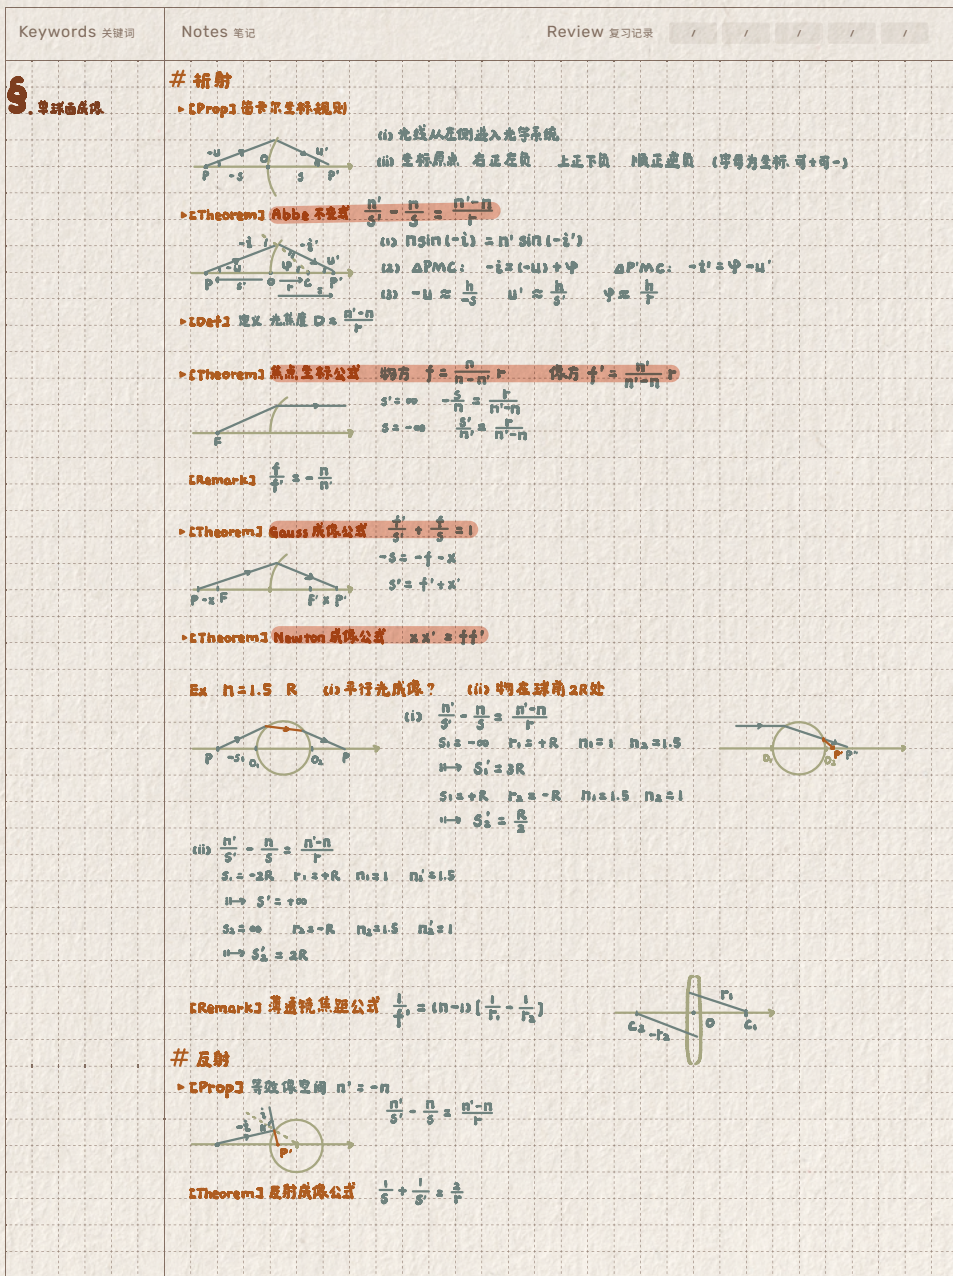 Keywords 关键词 Notes 笔记 Review 复习记录 / / / / /
# 折射
§. 单球面成像
▸ [Prop] 笛卡尔坐标规则
(i) 光线从左侧进入光学系统
(ii) 坐标原点 右正左负 上正下负 顺正逆负 (字母为坐标,可+可-)
-u u' O P -s s P'
▸ [Theorem] Abbe 不变式 n'/s' - n/s = (n'-n)/r
(1) nsin(-i) = n' sin(-i')
(2) △PMC: -i=(-u)+φ △P'MC: -i'=φ-u'
(3) -u ≈ h/-s u' ≈ h/s' φ≈ h/r
-i i -i' -u φ u' P s' O r C P' s
▸ [Def] 定义 光焦度 D = (n'-n)/r
▸ [Theorem] 焦点坐标公式 物方 f = n/(n-n') r 像方 f' = n'/(n'-n) r
s'=∞ -s/n = r/(n'-n)
s=-∞ s'/n' = r/(n'-n)
F
[Remark] f/f' = - n/n'
▸ [Theorem] Gauss 成像公式 f'/s' + f/s = 1
-s = -f - x
s' = f' + x'
P -x F F' x P'
▸ [Theorem] Newton 成像公式 xx' = ff'
Ex n=1.5 R (i) 平行光成像? (ii) 物在球前2R处
(i) n'/s' - n/s = (n'-n)/r
s₁=-∞ r₁=+R n₁=1 n₂=1.5
⟼ s₁'=3R
s₁=+R r₂=-R n₁=1.5 n₂=1
⟼ s₂' = R/2
P -s₁ O₁ O₂ P
O₁ O₂ P' P''
(ii) n'/s' - n/s = (n'-n)/r
s₁=-2R r₁=+R n₁=1 n₁'=1.5
⟼ s'=+∞
s₂=∞ r₂=-R n₂=1.5 n₂'=1
⟼ s₂' = 2R
[Remark] 薄透镜焦距公式 1/f' = (n-1)[1/r₁ - 1/r₂]
r₁ C₂ -r₂ O C₁
# 反射
▸ [Prop] 等效像空间 n'=-n
n'/s' - n/s = (n'-n)/r
-i P'
[Theorem] 反射成像公式 1/s + 1/s' = 2/r